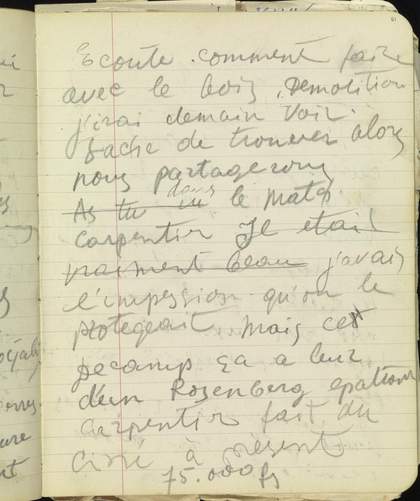 61
Ecoute comment faire
avec le bois, Demolition
j'irai demain voir.
Tache de trouver alors
nous partagerons
As tu vu dans le match
Carpentier Il etait
vraiment beau j'avais
l'impession qu'on le
protegeait. Mais cest
Decamps ca a l'air
d'un Rosenberg epatant
Carpentier fait du
Ciné à present
75.000 fs